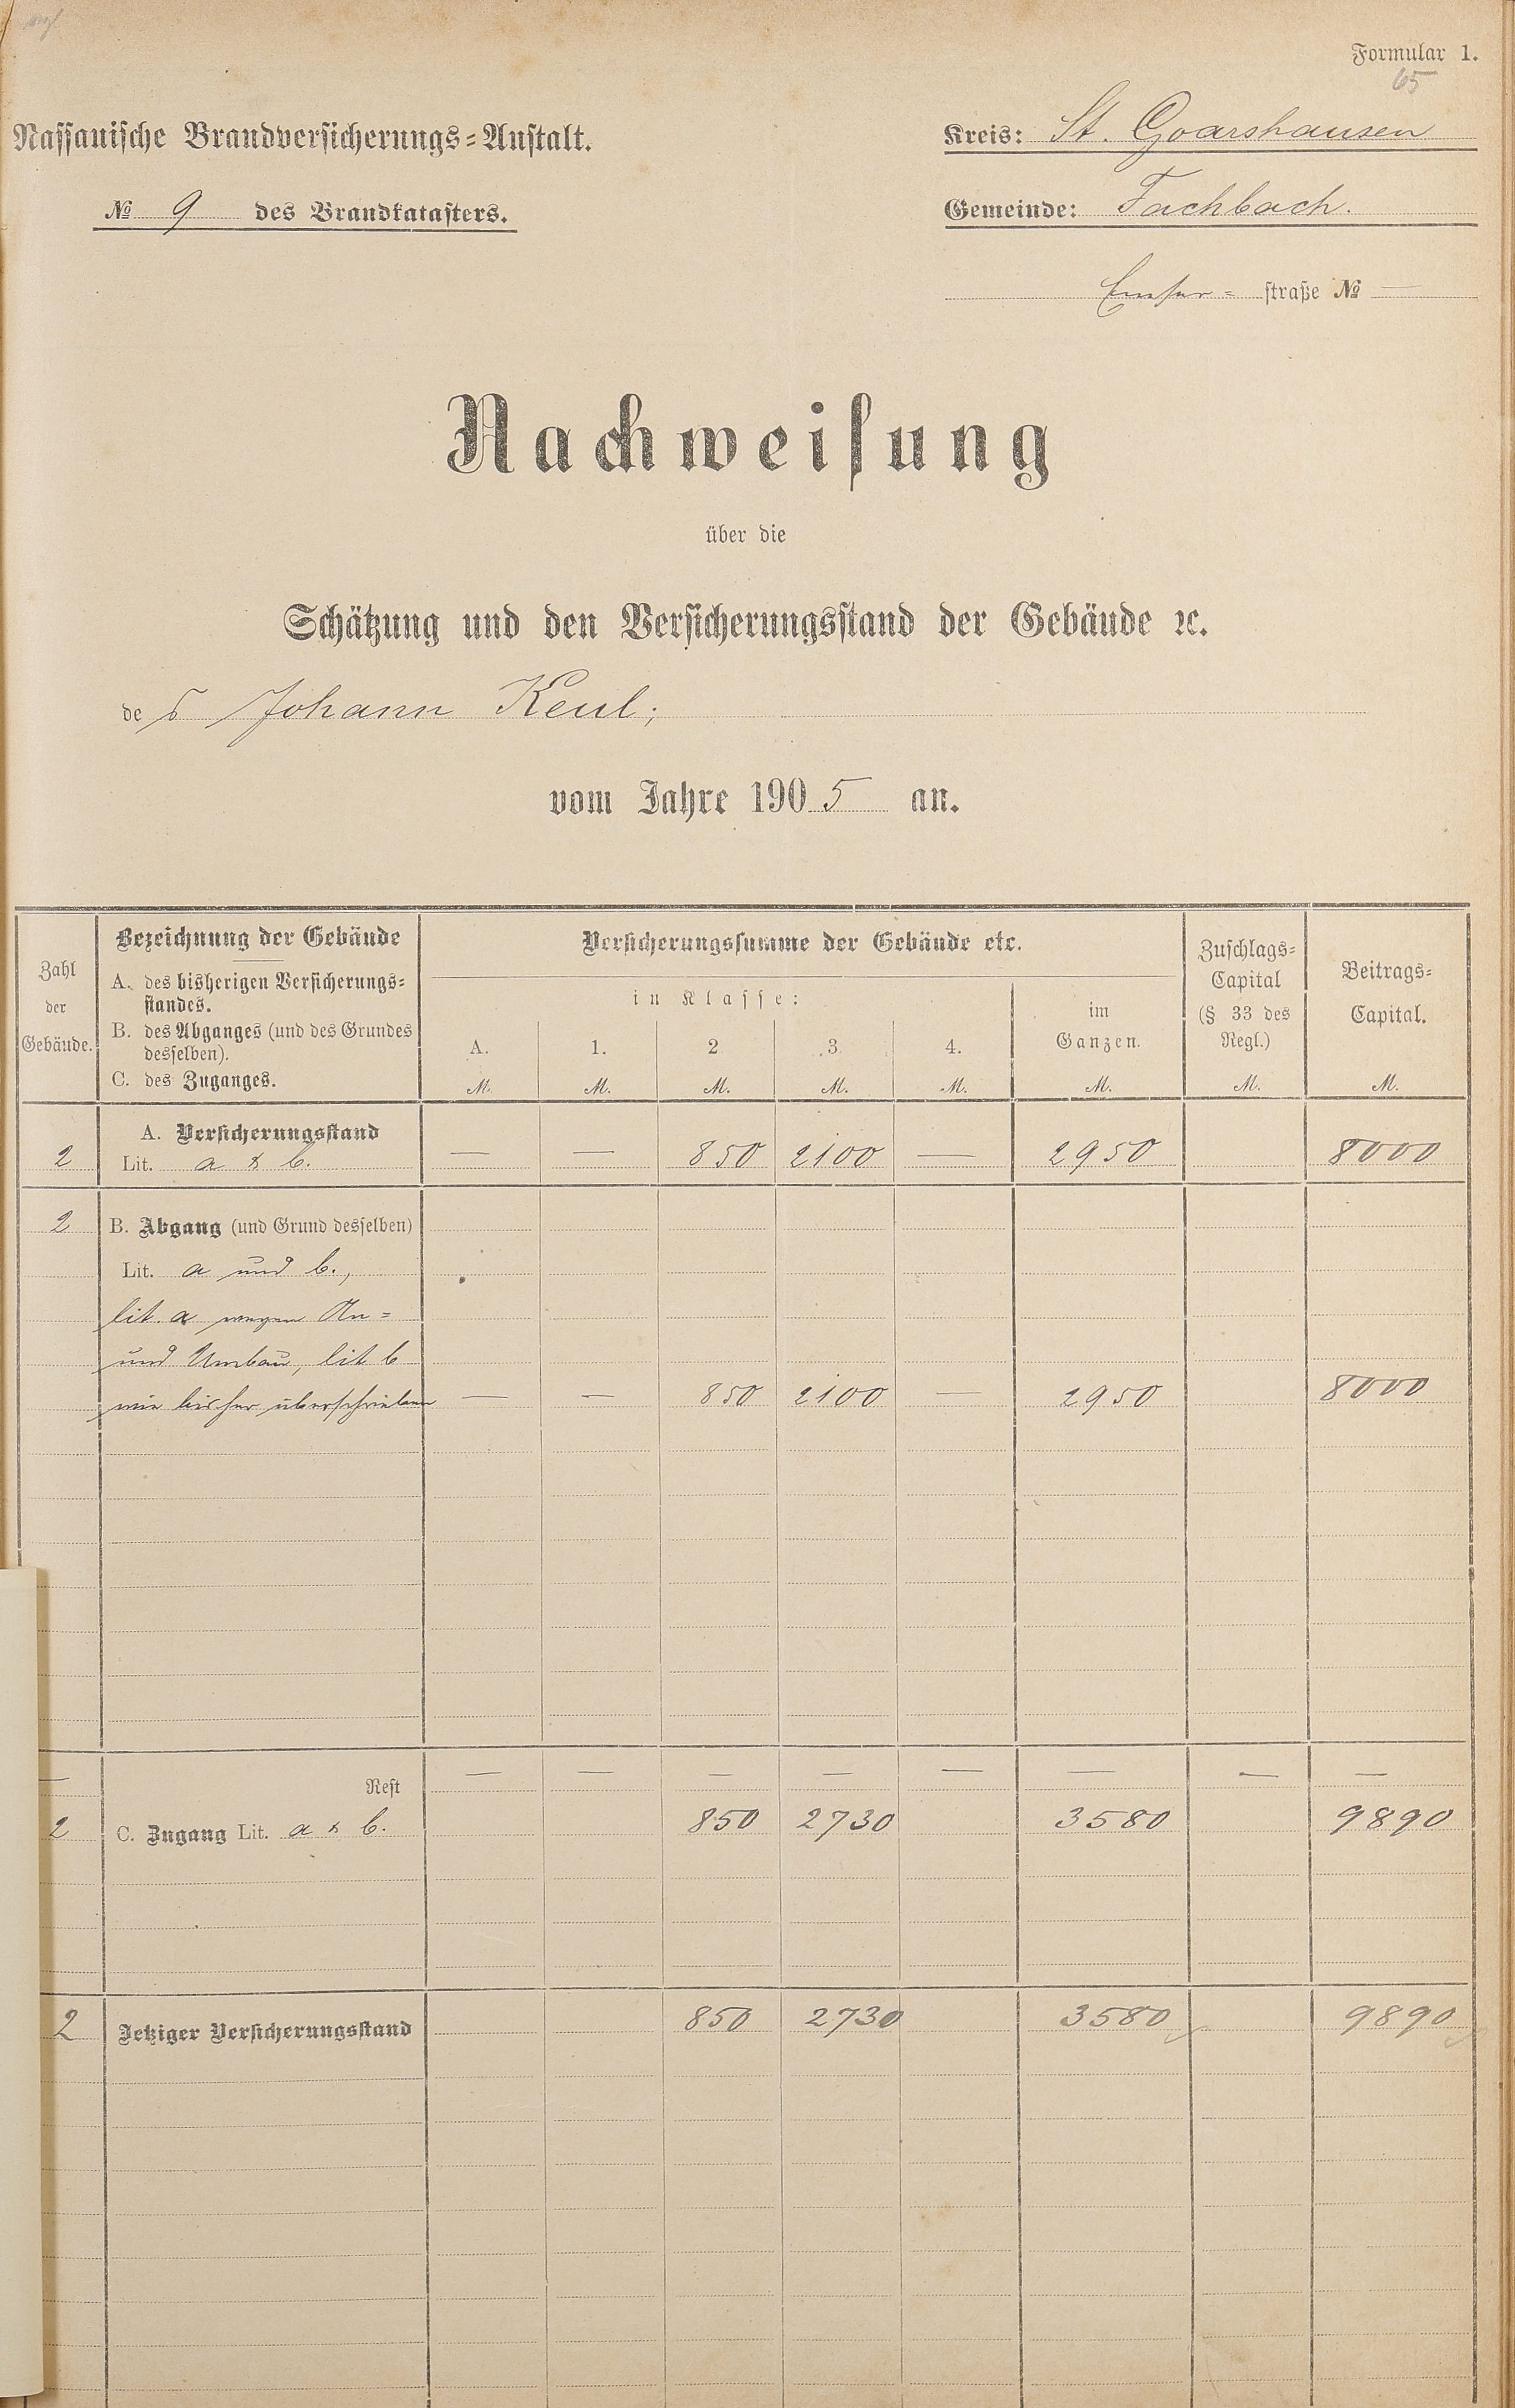 Formular 1.
65
Nassauische Brandversicherungs-Anstalt.
Kreis: St. Goarshausen
№ 9 des Brandkatasters.
Gemeinde: Fachbach.
Emser- straße № —
Nachweisung
über die
Schätzung und den Versicherungsstand der Gebäude ꝛc.
des Johann Keul;
vom Jahre 1905 an.
Zahl der Gebäude.
Bezeichnung der Gebäude
A. des bisherigen Versicherungs-
standes.
B. des Abganges (und des Grundes
desselben).
C. des Zuganges.
Versicherungssumme der Gebäude etc.
in Klasse:
A. 1. 2 3. 4.
im
Ganzen.
Zuschlags-
Capital
(§ 33 des
Regl.)
Beitrags-
Capital.
M. M. M. M. M. M. M. M.
A. Versicherungsstand
2 Lit. a & b. — — 850 2100 — 2950 8000
2 B. Abgang (und Grund desselben)
Lit. a und b.,
lit. a wegen An-
und Umbau, lit b
wie bisher überschrieben — — 850 2100 — 2950 8000
— Rest — — — — — — — —
2 C. Zugang Lit. a & b. 850 2730 3580 9890
2 Jetziger Versicherungsstand 850 2730 3580 9890